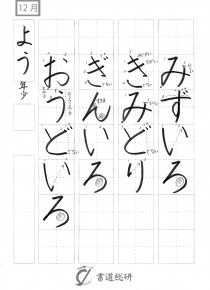 12月
みずいろ
きみどり
ぎんいろ
おうどいろ
よう
年少
書道総研